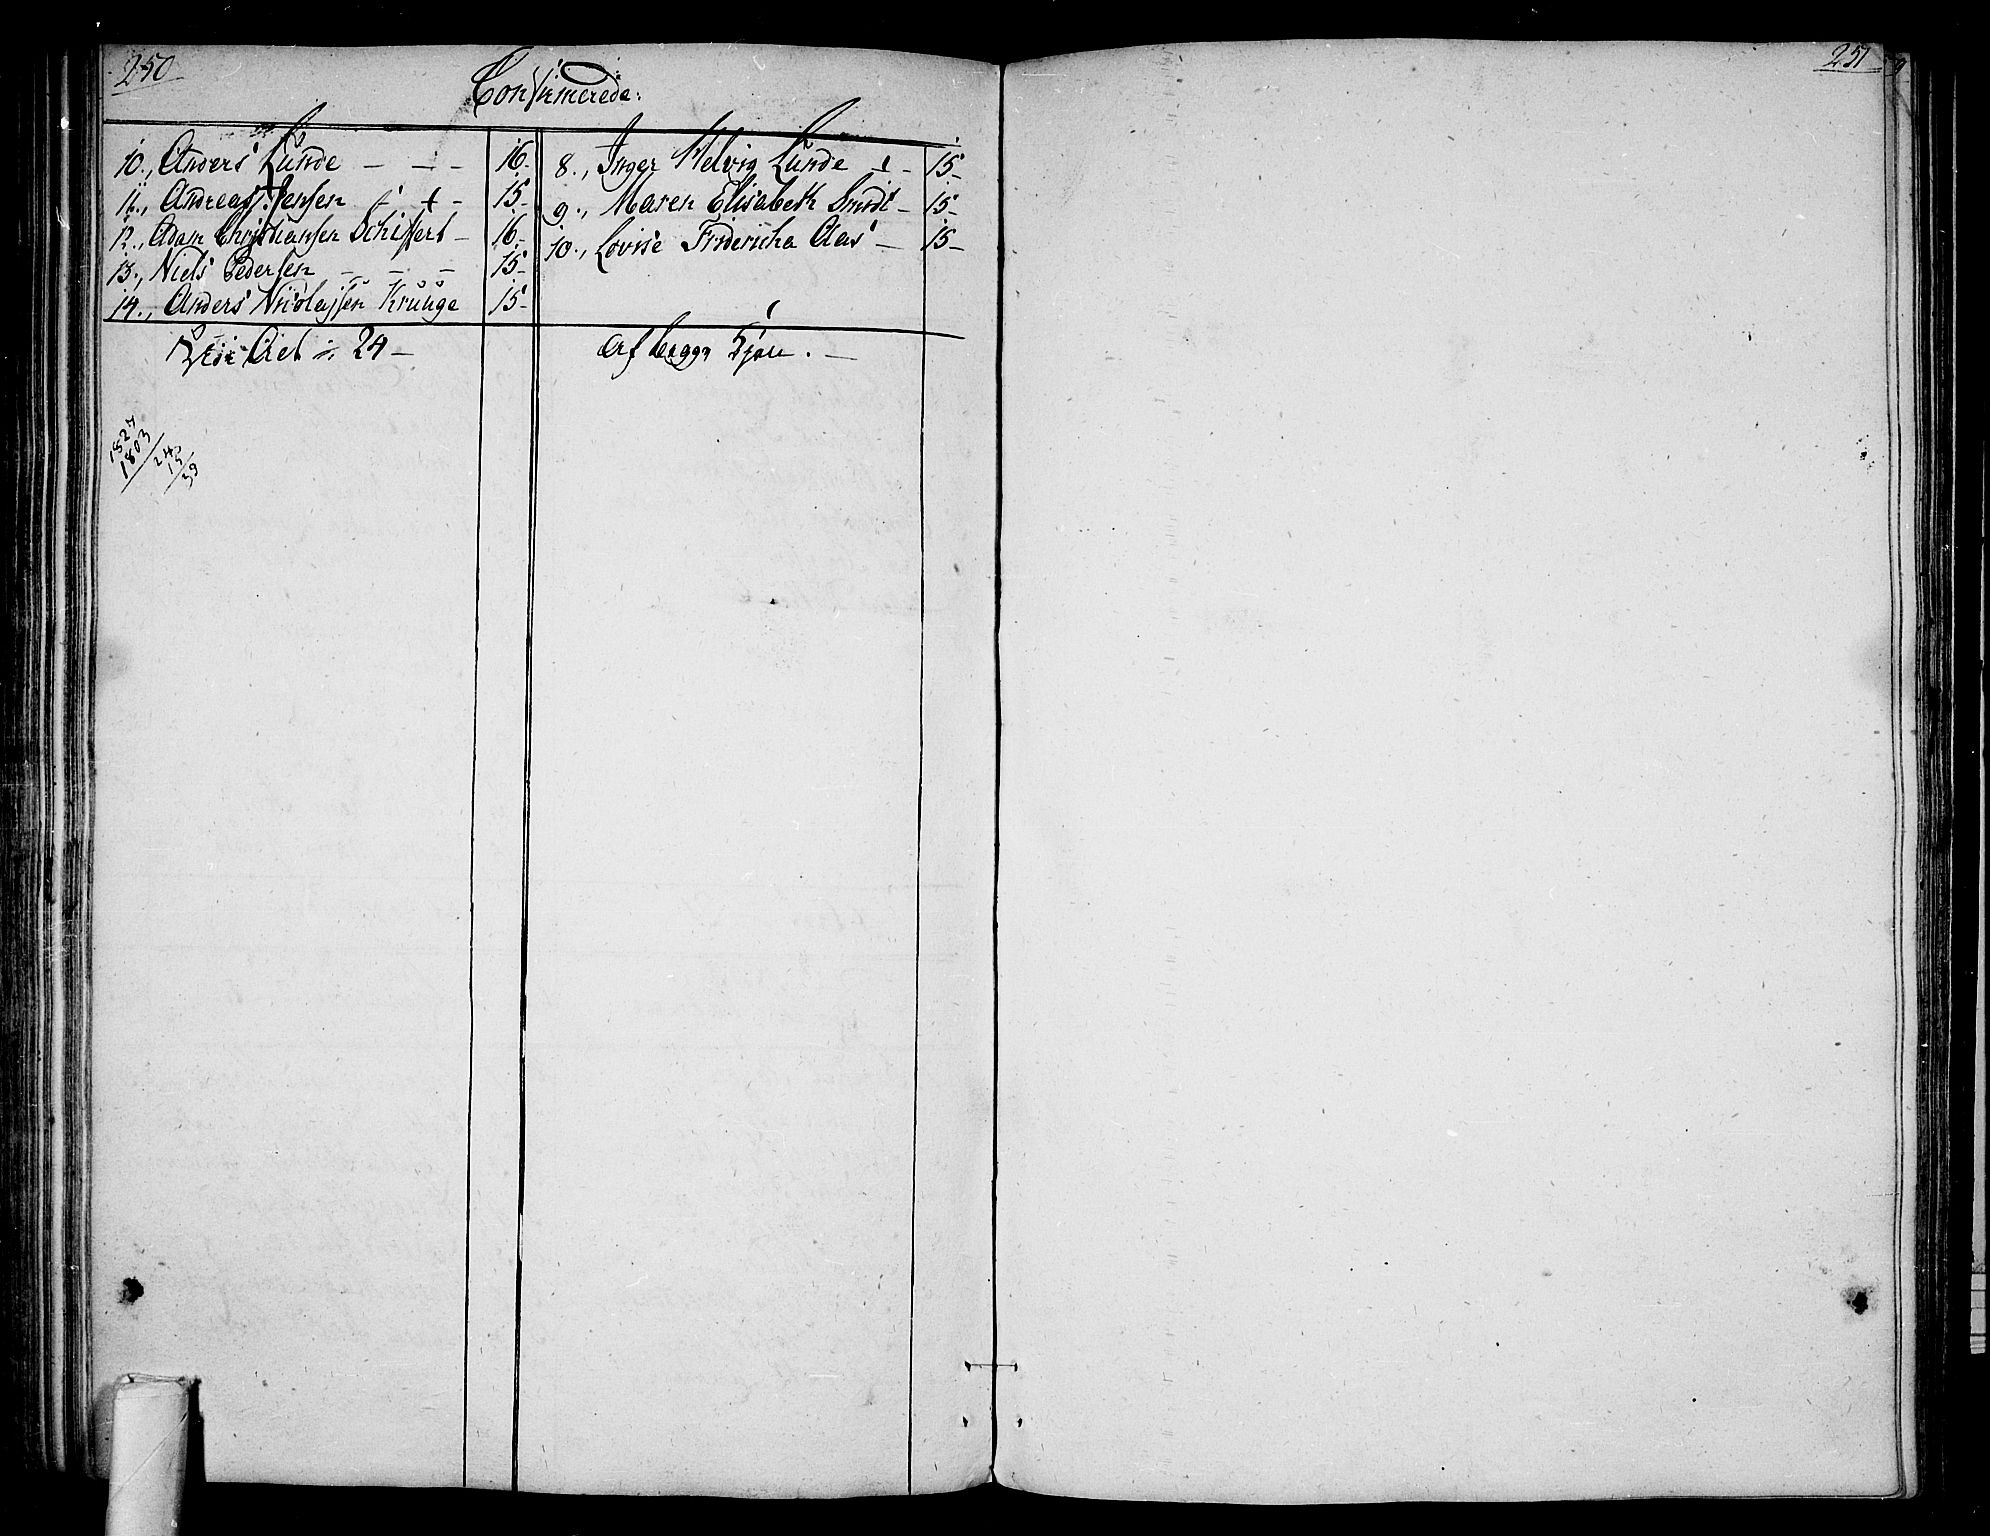 250
Confirmerede.
10., Anders Lunde – – – 16.
11., Andreas Jensen – + – 15.
12., Adam Christiansen Schiffert – 16.
13., Niels Pedersen – – – 15.
14., Anders Nicolajsen Kruuge 15.
Act 24 –
1827
1803
24
15
39
8., Inger Helvig Lunde – 15.
9., Maren Elisabeth Smidt – 15.
10., Lovise Fridericha Aas – 15.
af begge Kjøn. –
251